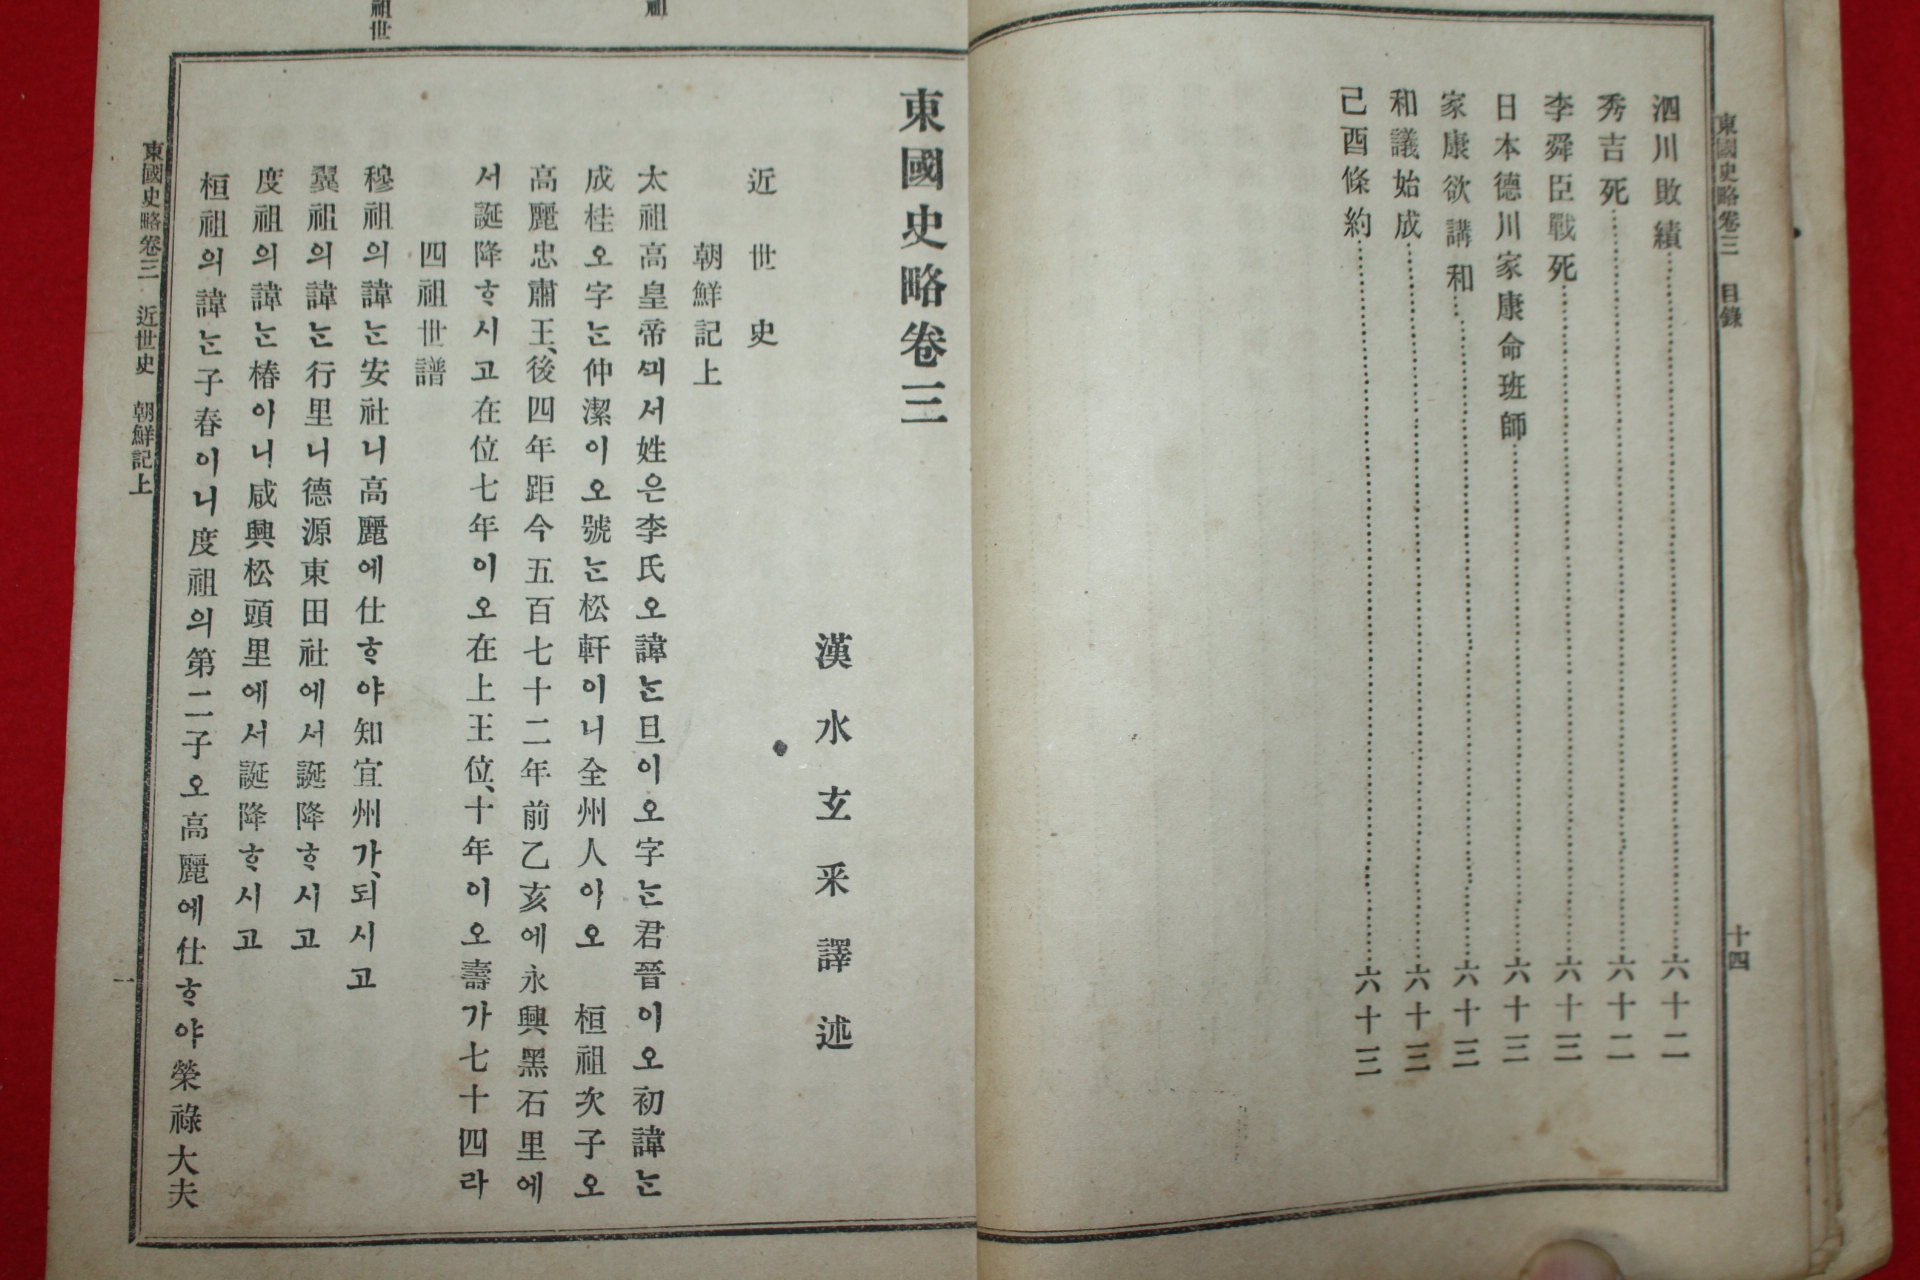 東國史略卷三 目錄
十四
泗川敗績……六十二
秀吉死……六十二
李舜臣戰死……六十三
日本德川家康命班師……六十三
家康欲講和……六十三
和議始成……六十三
己酉條約……六十三
東國史略卷三
漢水玄采譯述
近世史
朝鮮記上
太祖高皇帝믜서姓은李氏오諱는旦이오字는君晉이오初諱는
成桂오字는仲潔이오號는松軒이니全州人아오 桓祖次子오
高麗忠肅王、後四年距今五百七十二年前乙亥에永興黑石里에
서誕降ᄒᆞ시고在位七年이오在上王位、十年이오壽가七十四라
四祖世譜
穆祖의諱는安社니高麗에仕ᄒᆞ야知宜州가、되시고
翼祖의諱는行里니德源東田社에서誕降ᄒᆞ시고
度祖의諱는椿아니咸興松頭里에서誕降ᄒᆞ시고
桓祖의諱는子春이니度祖의第二子오高麗에仕ᄒᆞ야榮祿大夫
東國史略卷三 近世史 朝鮮記上
一